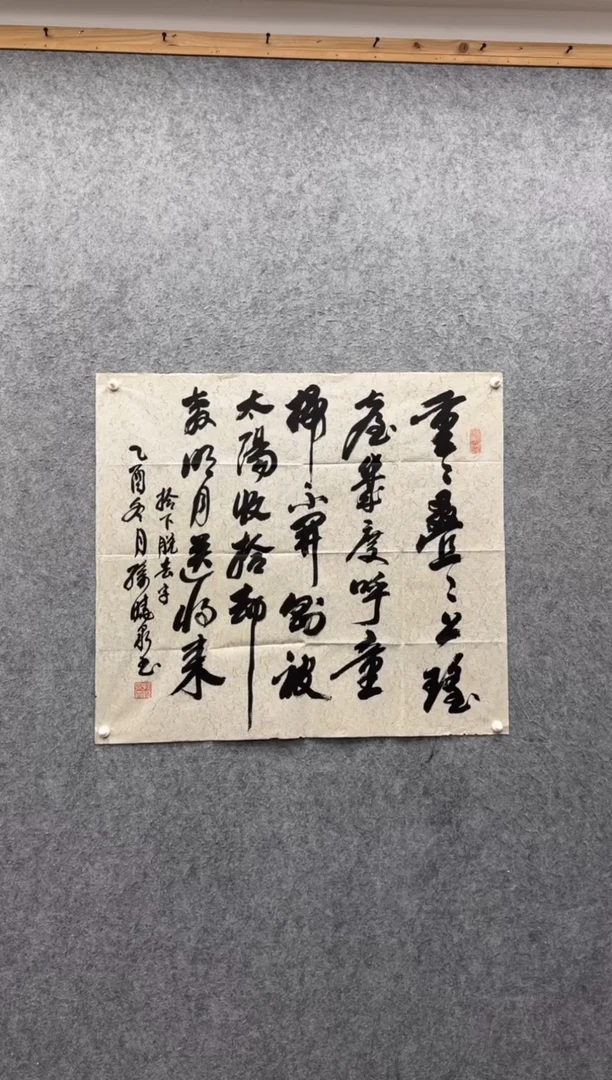 重〻疊〻上瑤
臺幾度呼童
掃不開剛被
太陽收拾却
教明月送將来
拾下脱去字
乙酉冬月孫曉泉书